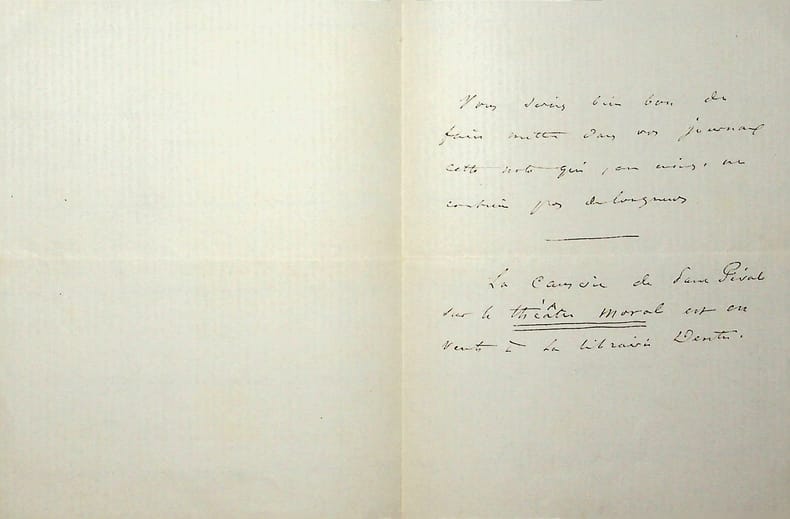 Vous seriez bien bon de
faire mettre dans vos journaux
cette note qui, au moins, ne
contient pas de longueurs
La causerie de Paul Féval
sur le théâtre moral est en
vente à la librairie Dentu.